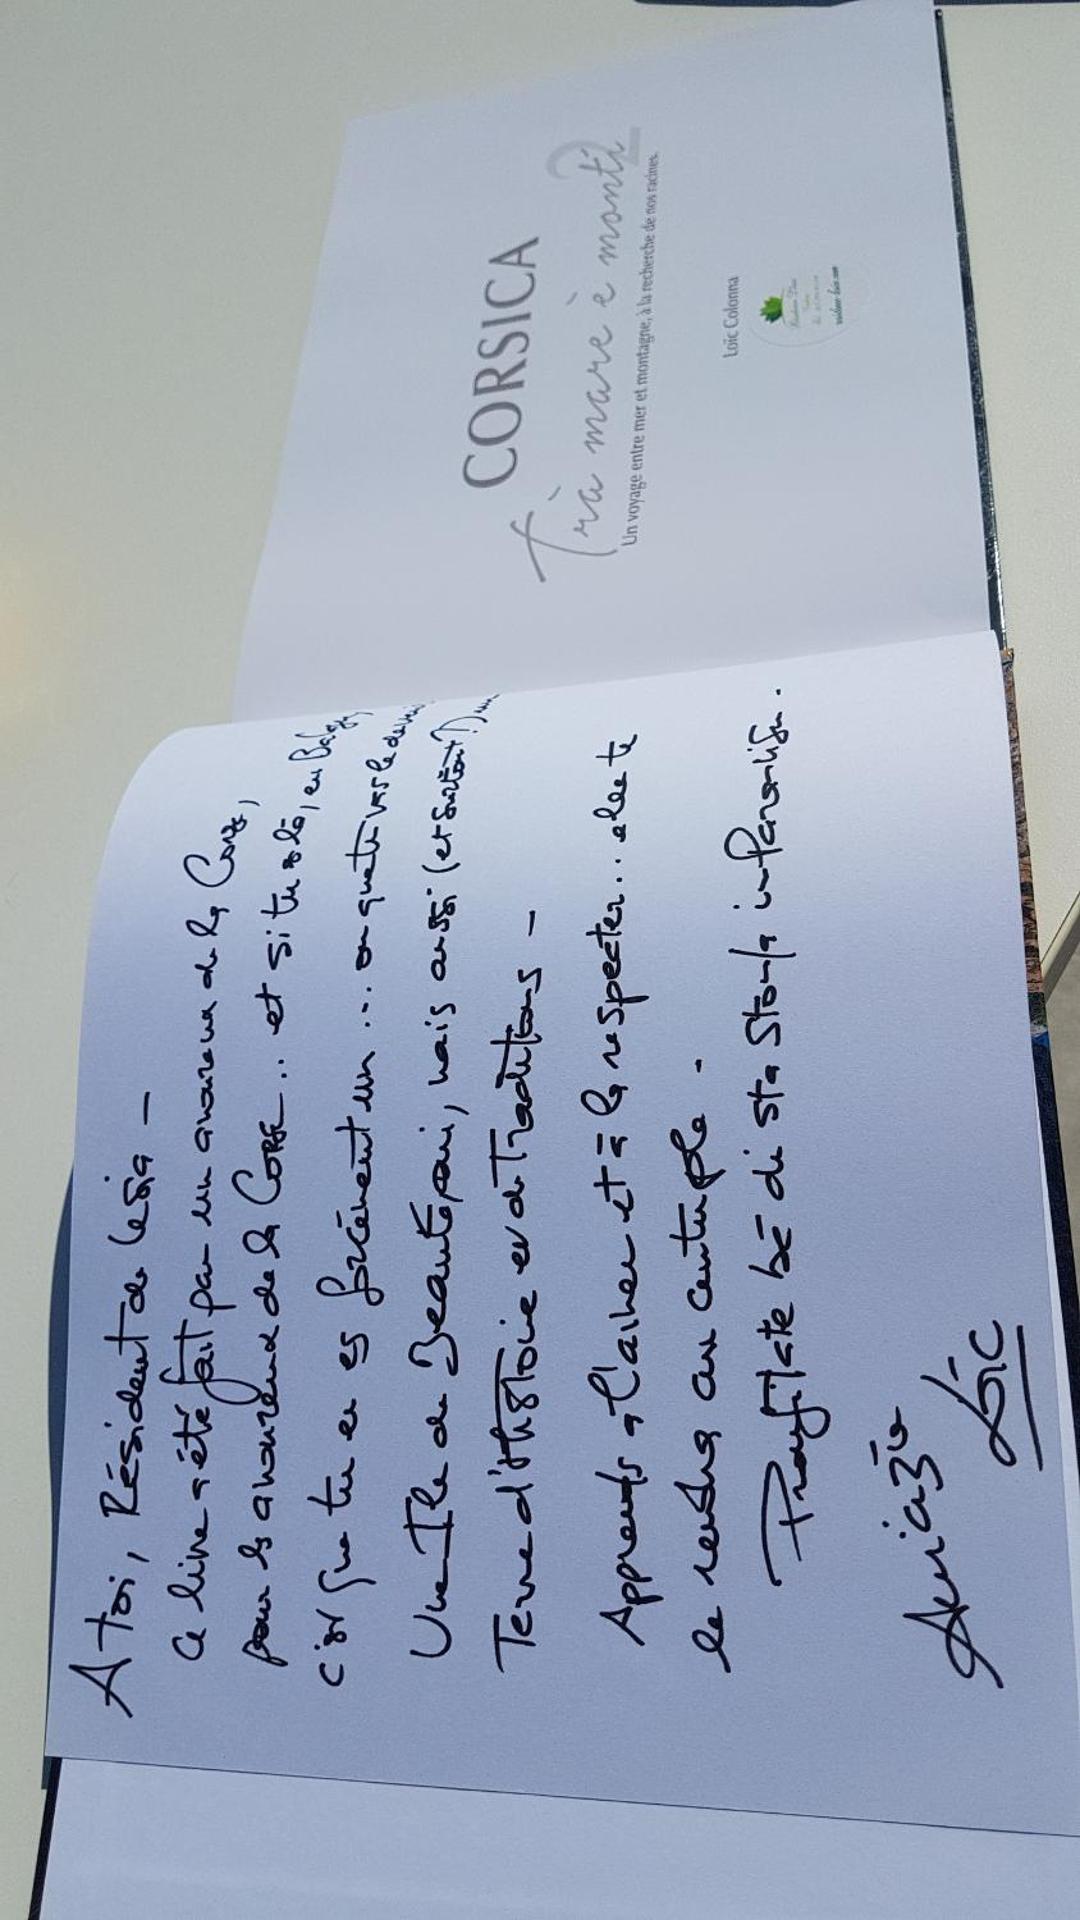 A toi, Résident de Lesia -
Ce livre a été fait par un amoureux de la Corse,
pour les amoureux de la Corse... et si tu es là, en
c'est que tu en es forcément un... ou en quête vers le
Une Ile de Beauté, oui, mais aussi (et surtout!) une
Terre d'Histoire et de Traditions -
Apprends à l'aimer et à la respecter... elle te
le rendra au centuple.
Prufittate bè di sta Storia in
Amicizia
Loïc
CORSICA
Trà mare è monti
Un voyage entre mer et montagne, à la recherche de nos racines.
Loïc Colonna